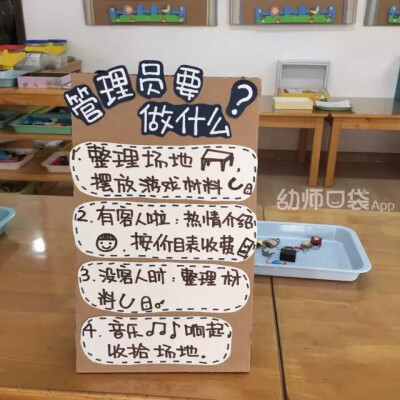 管理员要
做什么?
1. 整理场地,
摆放游戏材料
2. 有客人啦:热情介绍
按价目表收费
3. 没客人时:整理材
料。
4. 音乐♫♪响起
收拾场地.
幼师口袋App